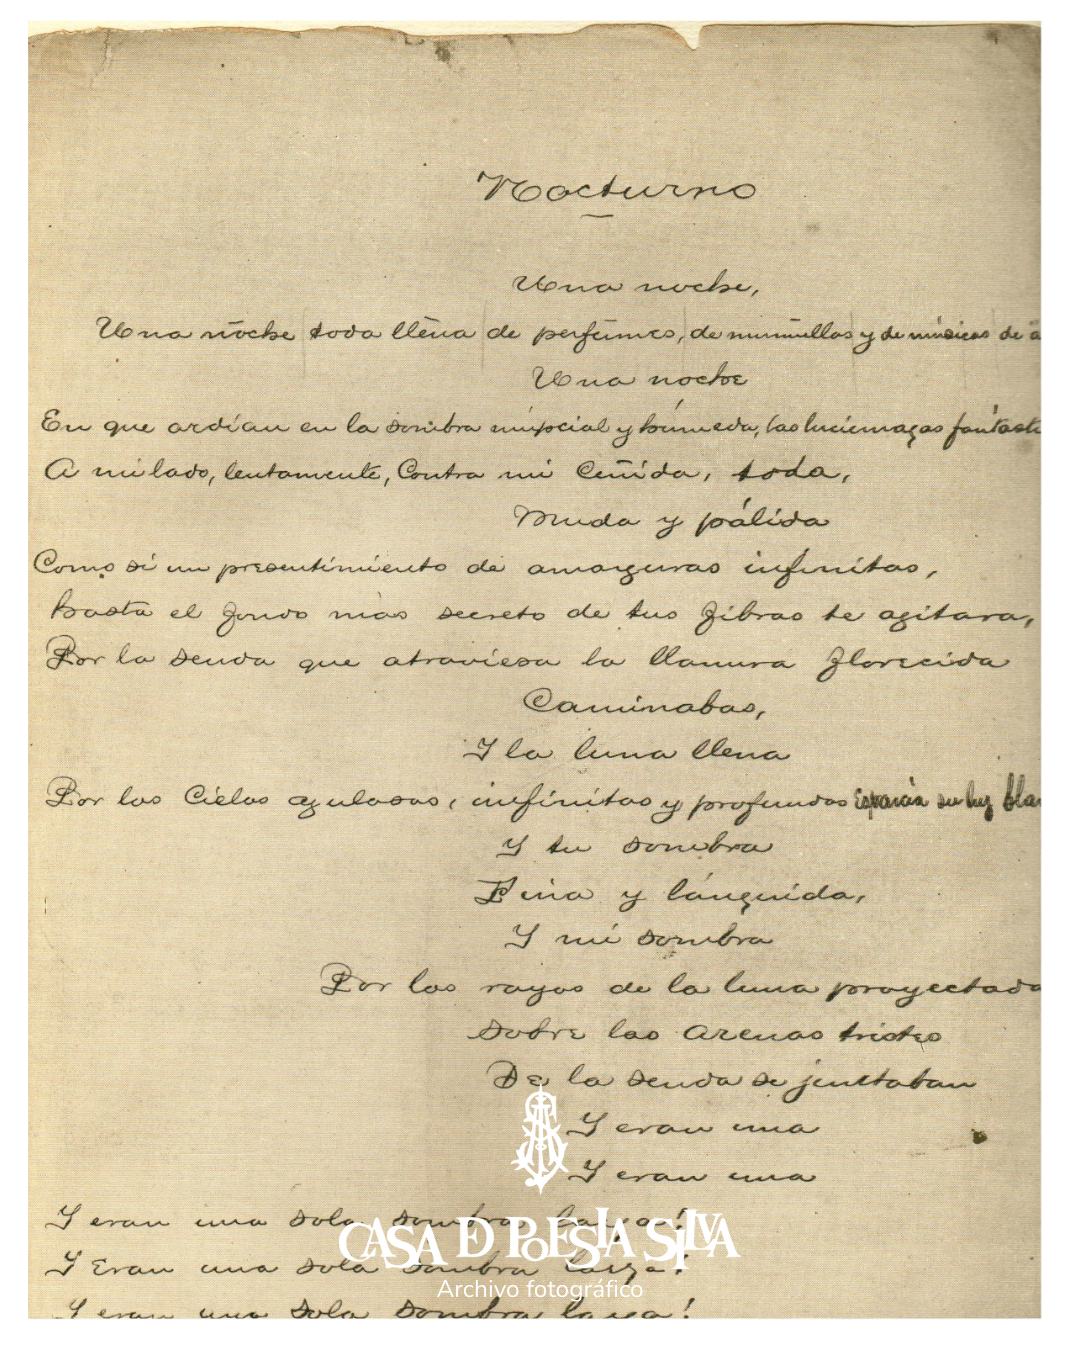 Nocturno
Una noche,
Una noche toda llena de perfumes, de murmullos y de músicas de
Una noche
En que ardían en la sombra nupcial y húmeda, las luciernagas
A mi lado, lentamente, Contra mi Ceñida, toda,
Muda y pálida
Como si un presentimiento de amarguras infinitas,
hasta el fondo más secreto de tus fibras te agitara,
Por la senda que atraviesa la llanura florecida
Caminabas,
Y la luna llena
Por los Cielos azulosos, infinitos y profundos Esparcía su luz
Y tu sombra
Fina y lánguida,
Y mi sombra
Por los rayos de la luna
Sobre las arenas tristes
De la senda se juntaban
Y eran una
Y eran una
Y eran una sola sombra larga!
Y Eran una sola sombra larga!
Y eran una sola sombra larga!
CASA DE POESIA SILVA
Archivo fotográfico